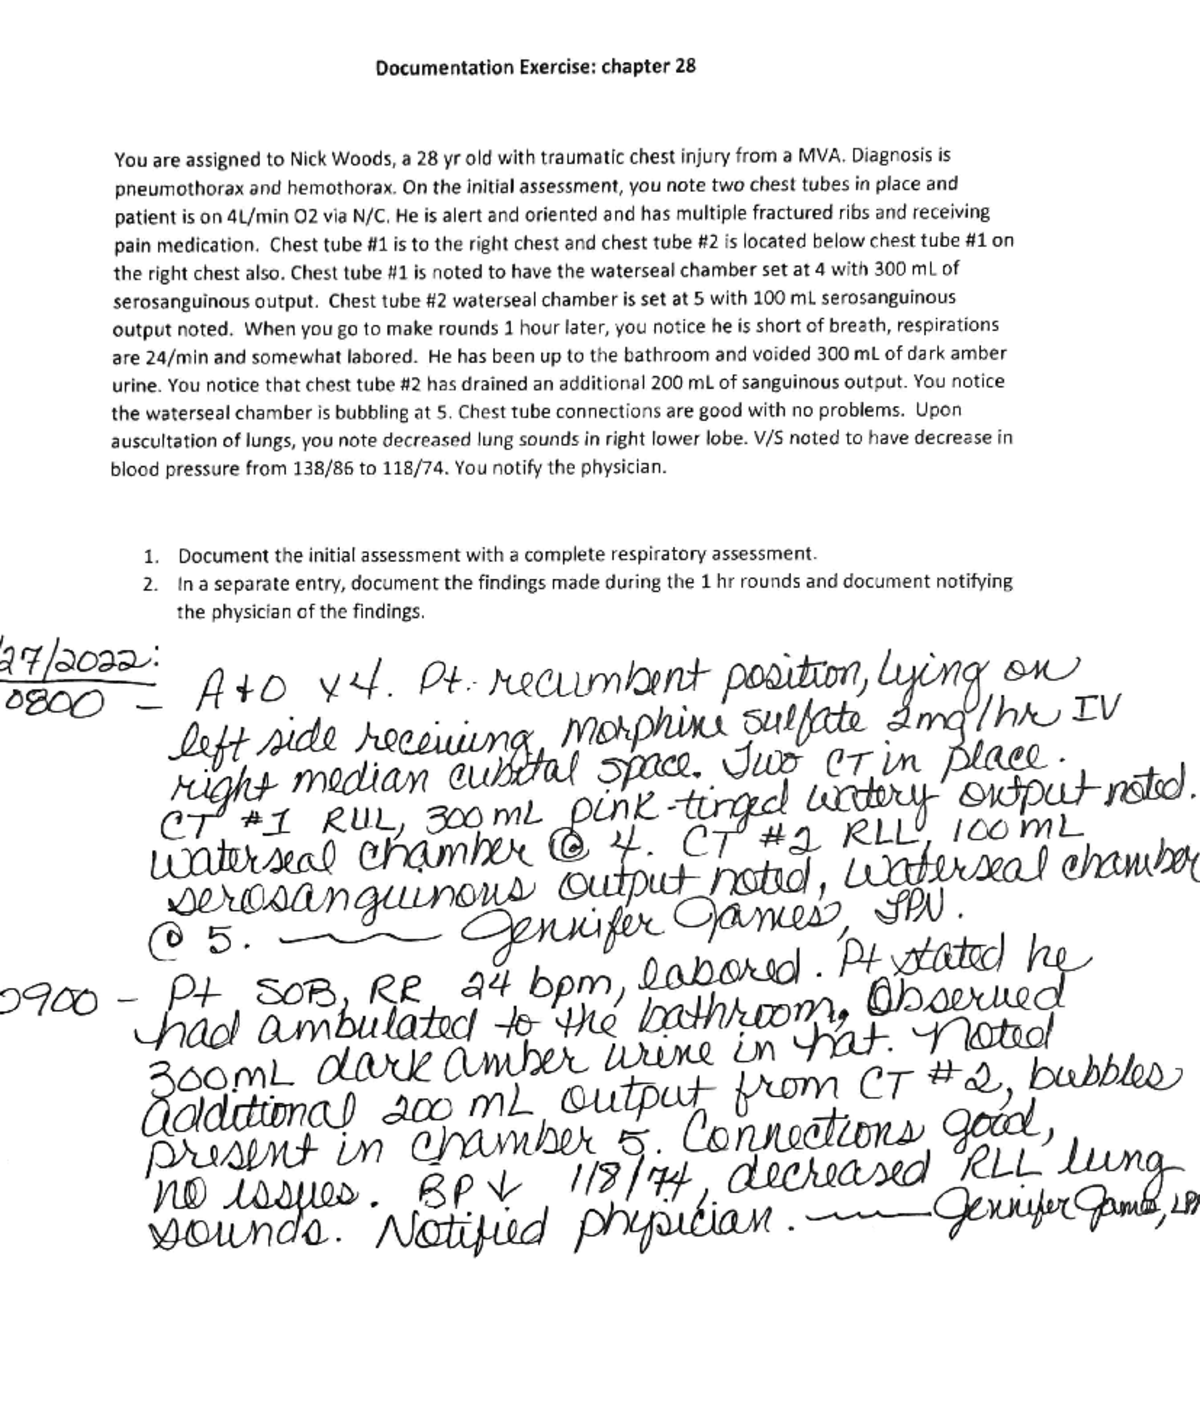 Documentation Exercise: chapter 28
You are assigned to Nick Woods, a 28 yr old with traumatic chest injury from a MVA. Diagnosis is
pneumothorax and hemothorax. On the initial assessment, you note two chest tubes in place and
patient is on 4L/min O2 via N/C. He is alert and oriented and has multiple fractured ribs and receiving
pain medication. Chest tube #1 is to the right chest and chest tube #2 is located below chest tube #1 on
the right chest also. Chest tube #1 is noted to have the waterseal chamber set at 4 with 300 mL of
serosanguinous output. Chest tube #2 waterseal chamber is set at 5 with 100 mL serosanguinous
output noted. When you go to make rounds 1 hour later, you notice he is short of breath, respirations
are 24/min and somewhat labored. He has been up to the bathroom and voided 300 mL of dark amber
urine. You notice that chest tube #2 has drained an additional 200 mL of sanguinous output. You notice
the waterseal chamber is bubbling at 5. Chest tube connections are good with no problems. Upon
auscultation of lungs, you note decreased lung sounds in right lower lobe. V/S noted to have decrease in
blood pressure from 138/86 to 118/74. You notify the physician.
1. Document the initial assessment with a complete respiratory assessment.
2. In a separate entry, document the findings made during the 1 hr rounds and document notifying
the physician of the findings.
27/2022:
0800 - A+O x4. Pt. recumbent position, lying on
left side receiving morphine sulfate 2mg/hr IV
right median cubital space. Two CT in place.
CT #1 RUL, 300 mL pink-tinged watery output noted.
waterseal chamber @ 4. CT #2 RLL, 100 mL
serosanguinous output noted, waterseal chamber
@ 5. Jennifer James, LPN.
0900 - Pt SOB, RR 24 bpm, labored. Pt stated he
had ambulated to the bathroom. Observed
300mL dark amber urine in hat. Noted
additional 200 mL output from CT #2, bubbles
present in chamber 5. Connections good,
no issues. BP ↓ 118/74, decreased RLL lung
sounds. Notified physician. Jennifer James, LPN